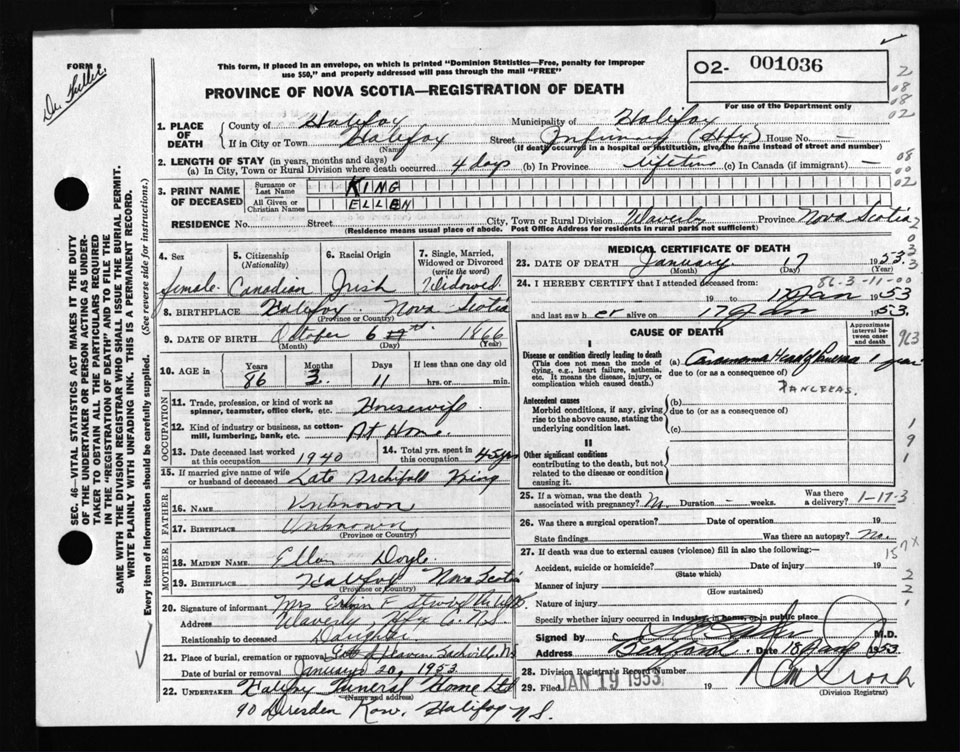 FORM 6
Dr. Fuller
This form, if placed in an envelope, on which is printed "Dominion Statistics—Free, penalty for improper
use $50," and properly addressed will pass through the mail "FREE"
PROVINCE OF NOVA SCOTIA—REGISTRATION OF DEATH
O2- 001036
For use of the Department only
1. PLACE OF DEATH
County of Halifax Municipality of Halifax
If in City or Town Halifax Street Infirmary (Hfx) House No. —
(Name) (If death occurred in a hospital or institution, give the name instead of street and number)
2. LENGTH OF STAY (in years, months and days)
(a) In City, Town or Rural Division where death occurred 4 days (b) In Province lifetime (c) In Canada (if immigrant) —
3. PRINT NAME OF DECEASED
Surname or Last Name KING
All Given or Christian Names ELLEN
RESIDENCE No. Street City, Town or Rural Division Waverly Province Nova Scotia
(Residence means usual place of abode. Post Office Address for residents in rural parts not sufficient)
4. Sex
female
5. Citizenship (Nationality)
Canadian
6. Racial Origin
Irish
7. Single, Married, Widowed or Divorced (write the word)
Widowed
8. BIRTHPLACE Halifax Nova Scotia
(Province or Country)
9. DATE OF BIRTH October 6th 1866
(Month) (Day) (Year)
10. AGE in
Years Months Days If less than one day old
86 3 11 hrs. or min.
OCCUPATION
11. Trade, profession, or kind of work as spinner, teamster, office clerk, etc. Housewife
12. Kind of industry or business, as cotton-mill, lumbering, bank, etc. At Home.
13. Date deceased last worked at this occupation 1940
14. Total yrs. spent in this occupation 45 yrs
15. If married give name of wife or husband of deceased Late Archibald King
FATHER
16. NAME Unknown
17. BIRTHPLACE Unknown
(Province or Country)
MOTHER
18. MAIDEN NAME Ellen Doyle
19. BIRTHPLACE Halifax Nova Scotia
(Province or Country)
20. Signature of informant Mrs
Address Waverly, Hfx Co. N.S.
Relationship to deceased Daughter
21. Place of burial, cremation or removal Sackville, N.S.
Date of burial or removal January 20, 1953
22. UNDERTAKER Halifax Funeral Home Ltd
(Name and address)
90 Dresden Row, Halifax N.S.
MEDICAL CERTIFICATE OF DEATH
23. DATE OF DEATH January 17 1953
(Month) (Day) (Year)
24. I HEREBY CERTIFY that I attended deceased from: 86-3-11-00
19 to 17 Jan 1953
and last saw her alive on 17 Jan 1953.
CAUSE OF DEATH
Approximate interval between onset and death
I
Disease or condition directly leading to death
(This does not mean the mode of dying, e.g., heart failure, asthenia, etc. It means the disease, injury, or complication which caused death.)
(a) Carcinoma Head of Pancreas 1 year
due to (or as a consequence of)
PANCREAS.
Antecedent causes
Morbid conditions, if any, giving rise to the above cause, stating the underlying condition last.
(b)
due to (or as a consequence of)
(c)
II
Other significant conditions
contributing to the death, but not related to the disease or condition causing it.
25. If a woman, was the death associated with pregnancy? No Duration — weeks. Was there a delivery? 1-17-3
26. Was there a surgical operation? Date of operation 19
State findings Was there an autopsy? No.
27. If death was due to external causes (violence) fill in also the following:—
Accident, suicide or homicide? Date of injury 19
(State which)
Manner of injury
(How sustained)
Nature of injury
Specify whether injury occurred in industry, in home, or in public place
Signed by M.D.
Address Bedford Date 18 Jan 1953
28. Division Registrar's Record Number
29. Filed JAN 19 1953 19
(Division Registrar)
SEC. 46—VITAL STATISTICS ACT MAKES IT THE DUTY
OF THE UNDERTAKER OR PERSON ACTING AS UNDER-
TAKER TO OBTAIN ALL THE PARTICULARS REQUIRED
IN THE "REGISTRATION OF DEATH" AND TO FILE THE
SAME WITH THE DIVISION REGISTRAR WHO SHALL ISSUE THE BURIAL PERMIT.
WRITE PLAINLY WITH UNFADING INK. THIS IS A PERMANENT RECORD.
Every item of information should be carefully supplied. (See reverse side for instructions.)